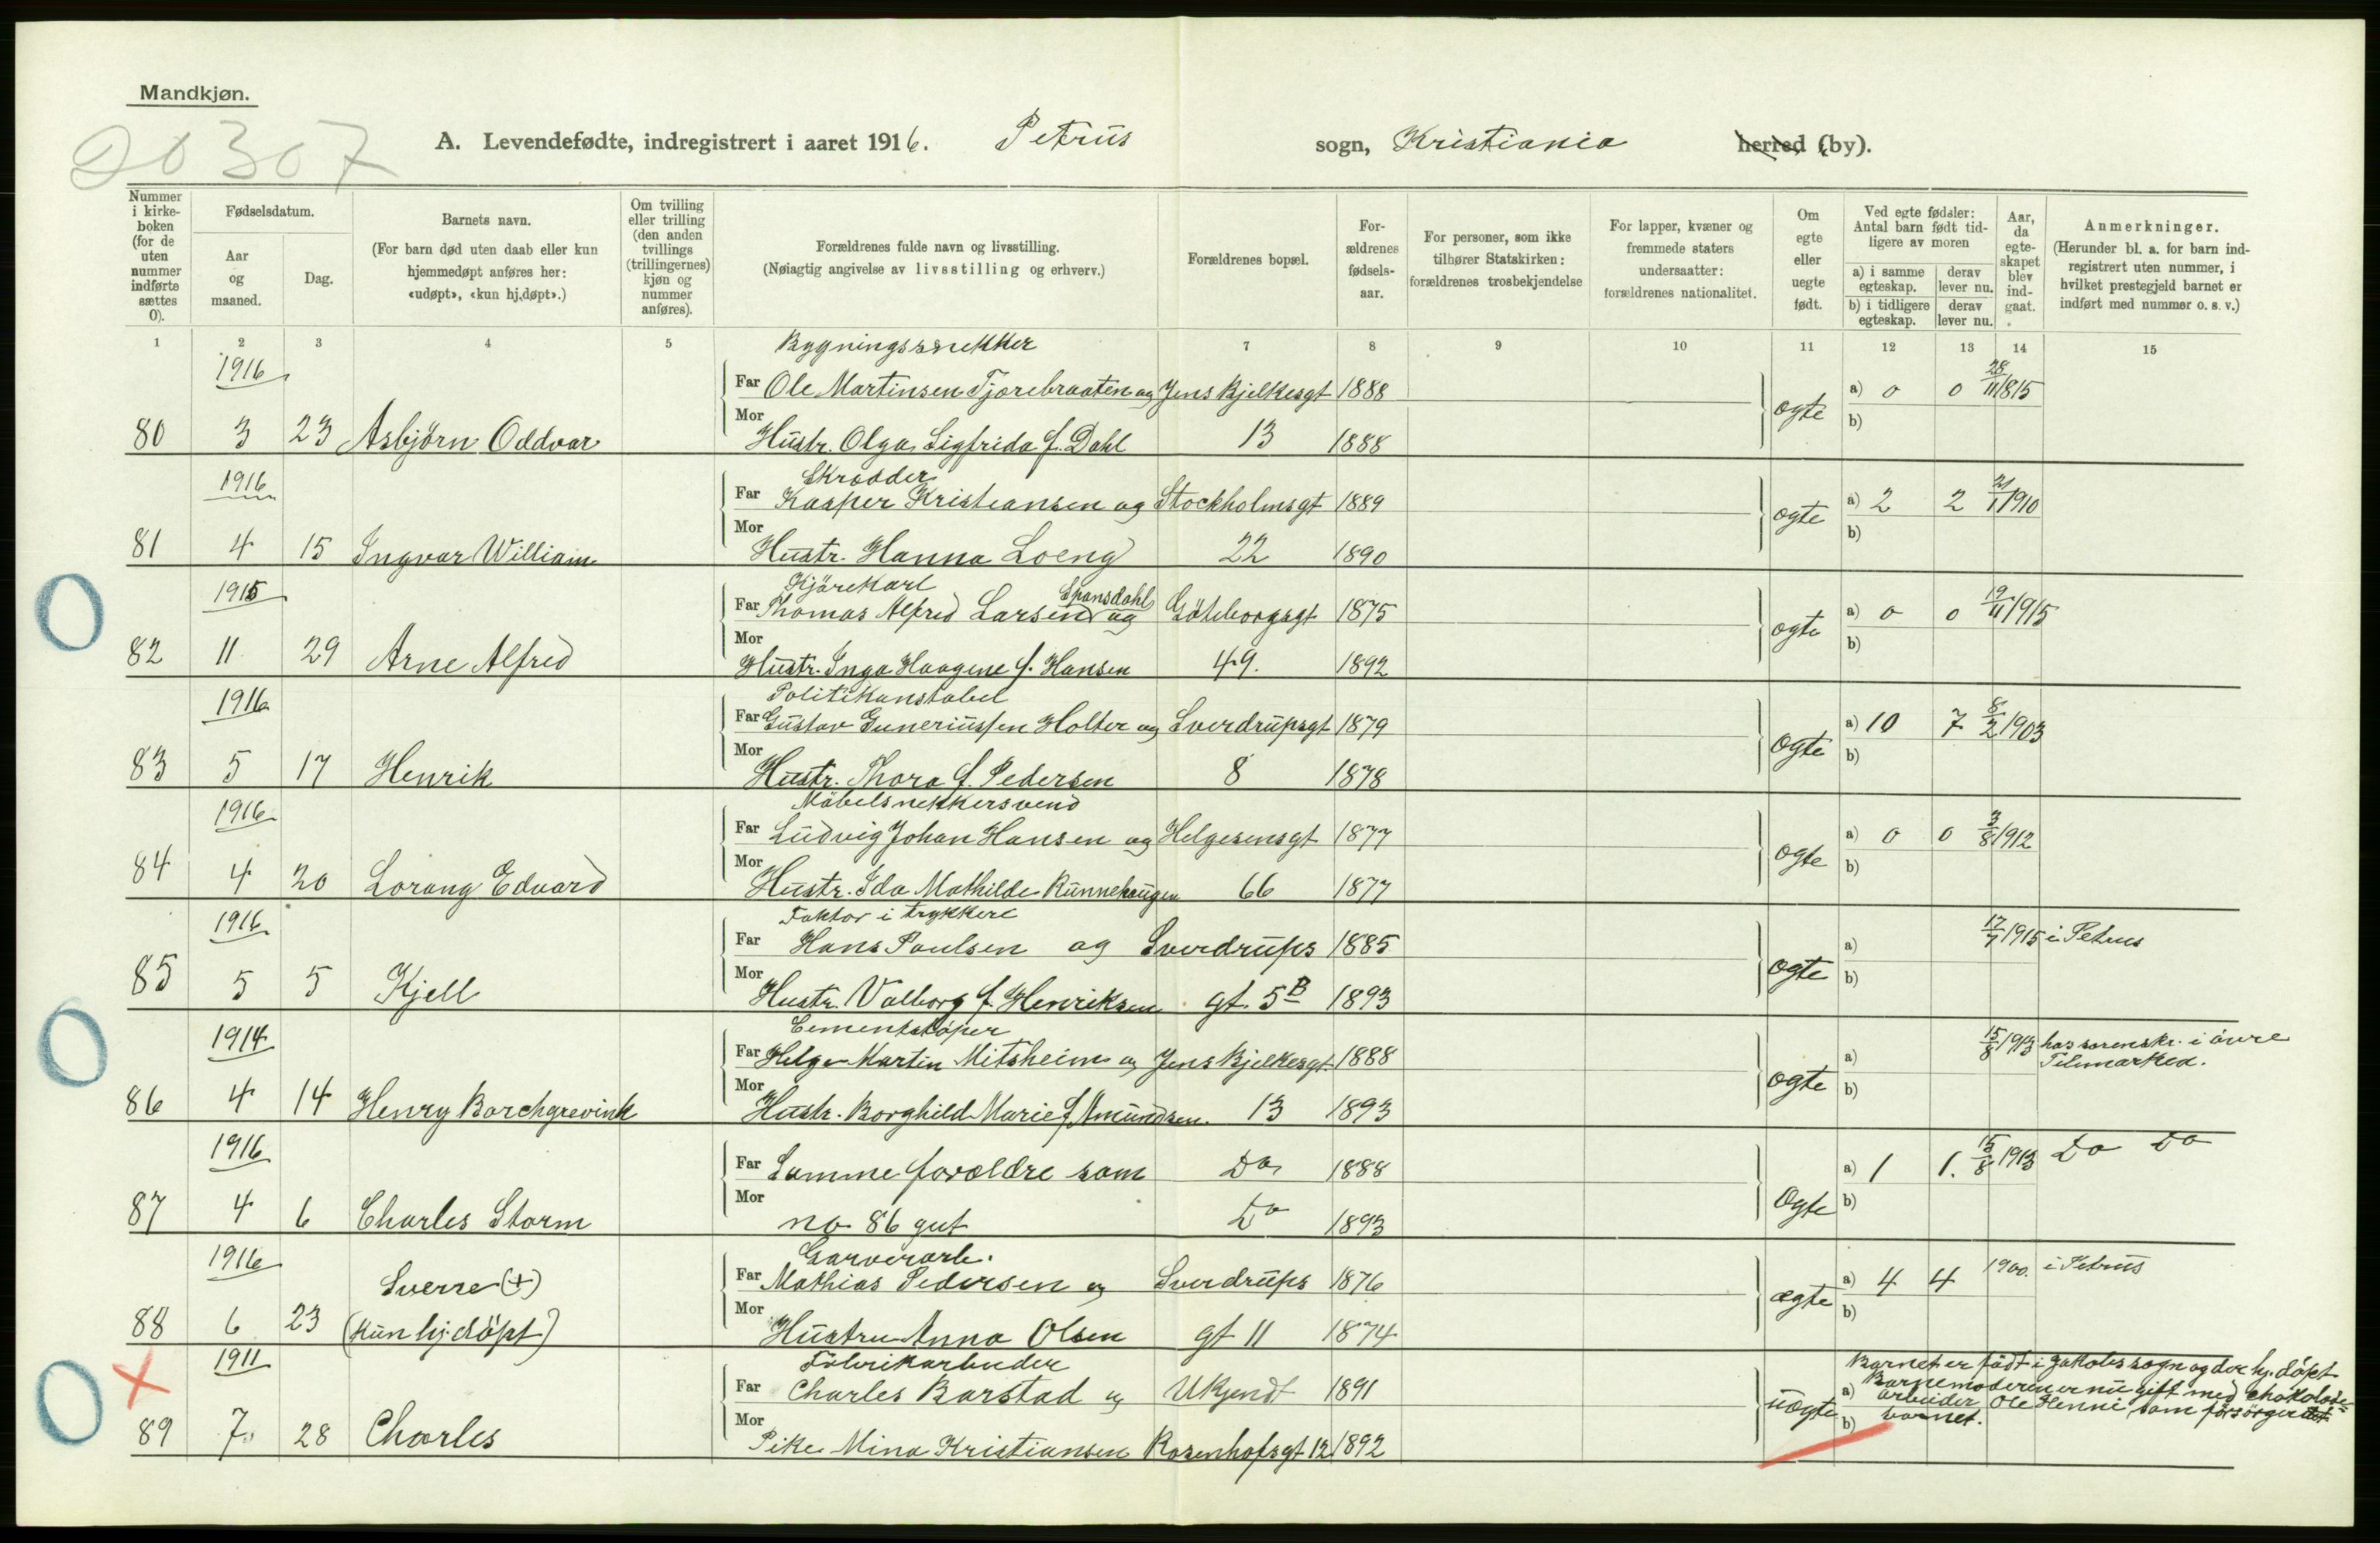 Mandkjøn.
20307
A. Levendefødte, indregistrert i aaret 1916. Petrus sogn, Kristiania herred (by).
Nummer i kirkeboken (for de uten nummer indførte sættes 0).
Fødselsdatum.
Aar og maaned.
Dag.
Barnets navn.
(For barn død uten daab eller kun hjemmedøpt anføres her: «udøpt», «kun hj.døpt».)
Om tvilling eller trilling (den anden tvillings (trillingernes) kjøn og nummer anføres).
Forældrenes fulde navn og livsstilling.
(Nøiagtig angivelse av livsstilling og erhverv.)
Forældrenes bopæl.
Forældrenes fødselsaar.
For personer, som ikke tilhører Statskirken: forældrenes trosbekjendelse
For lapper, kvæner og fremmede staters undersaatter: forældrenes nationalitet.
Om egte eller uegte født.
Ved egte fødsler: Antal barn født tidligere av moren
a) i samme egteskap. derav lever nu.
b) i tidligere egteskap. derav lever nu.
Aar, da egteskapet blev indgaat.
Anmerkninger.
(Herunder bl. a. for barn indregistrert uten nummer, i hvilket prestegjeld barnet er indført med nummer o. s. v.)
1 2 3 4 5 7 8 9 10 11 12 13 14 15
Bygningssnekker
1916 Far Ole Martinsen Tjorebraaten og Jens Bjelkesgt 1888 a) 0 0 28/11 1815
80 3 23 Asbjørn Oddvar Mor Hustr. Olga Sigfrida f. Dahl 13 1888 ogte b)
Skrodder
1916 Far Kasper Kristiansen og Stockholmsgt 1889 a) 2 2 21/1 1910
81 4 15 Ingvar William Mor Hustr. Hanna Loeng 22 1890 ogte b)
Kjörekarl
1915 Far Thomas Alfred Larsen Spansdahl og Göteborgsgt 1875 a) 0 0 19/11 1915
82 11 29 Arne Alfred Mor Hustr. Inga Haagine f. Hansen 49. 1892 ogte b)
Politikonstabel
1916 Far Gustav Guneriussen Holter og Sverdrupsgt 1879 a) 10 7 8/2 1903
83 5 17 Henrik Mor Hustr. Thora f. Pedersen 8 1878 ogte b)
Möbelsnekkersvend
1916 Far Ludvig Johan Hansen og Helgesensgt 1877 a) 0 0 3/8 1912
84 4 20 Lorang Edvard Mor Hustr. Ida Mathilde Runnehaugen 66 1877 ogte b)
Faktor i trykkere
1916 Far Hans Paulsen og Sverdrups 1885 a) 17/7 1915 i Petrus
85 5 5 Kjell Mor Hustr. Valborg f. Henriksen gt. 5B 1893 ogte b)
Cementstöper
1914 Far Helge Martin Mitsheim og Jens Bjelkesgt 1888 a) 15/8 1913 hos sorenskr. i övre Telemarken.
86 4 14 Henry Borchgrevink Mor Hustr. Borghild Marie f. Amundsen. 13 1893 ogte b)
1916 Far Samme foreldre som Do 1888 a) 1 1. 15/8 1913 Do Do
87 4 6 Charles Storm Mor no 86 gut Do 1893 ogte b)
Garverarb.
1916 Sverre (+) Far Mathias Pedersen og Sverdrups 1876 a) 4 4 1900. i Petrus
88 6 23 (kun hj. döpt) Mor Hustru Anna Olsen gt 11 1874 ægte b)
Fabrikarbeider
1911 Far Charles Barstad og Ukjendt 1891 a)
89 7 28 Charles Mor Pike Mina Kristiansen Rosenhofsgt 12 1892 uogte b)
Barnet er födt i Jakobs sogn og der hj. döpt
Barnemoderen er nu gift med chokolade-
arbeider Ole Henni som forsörger
barnet.